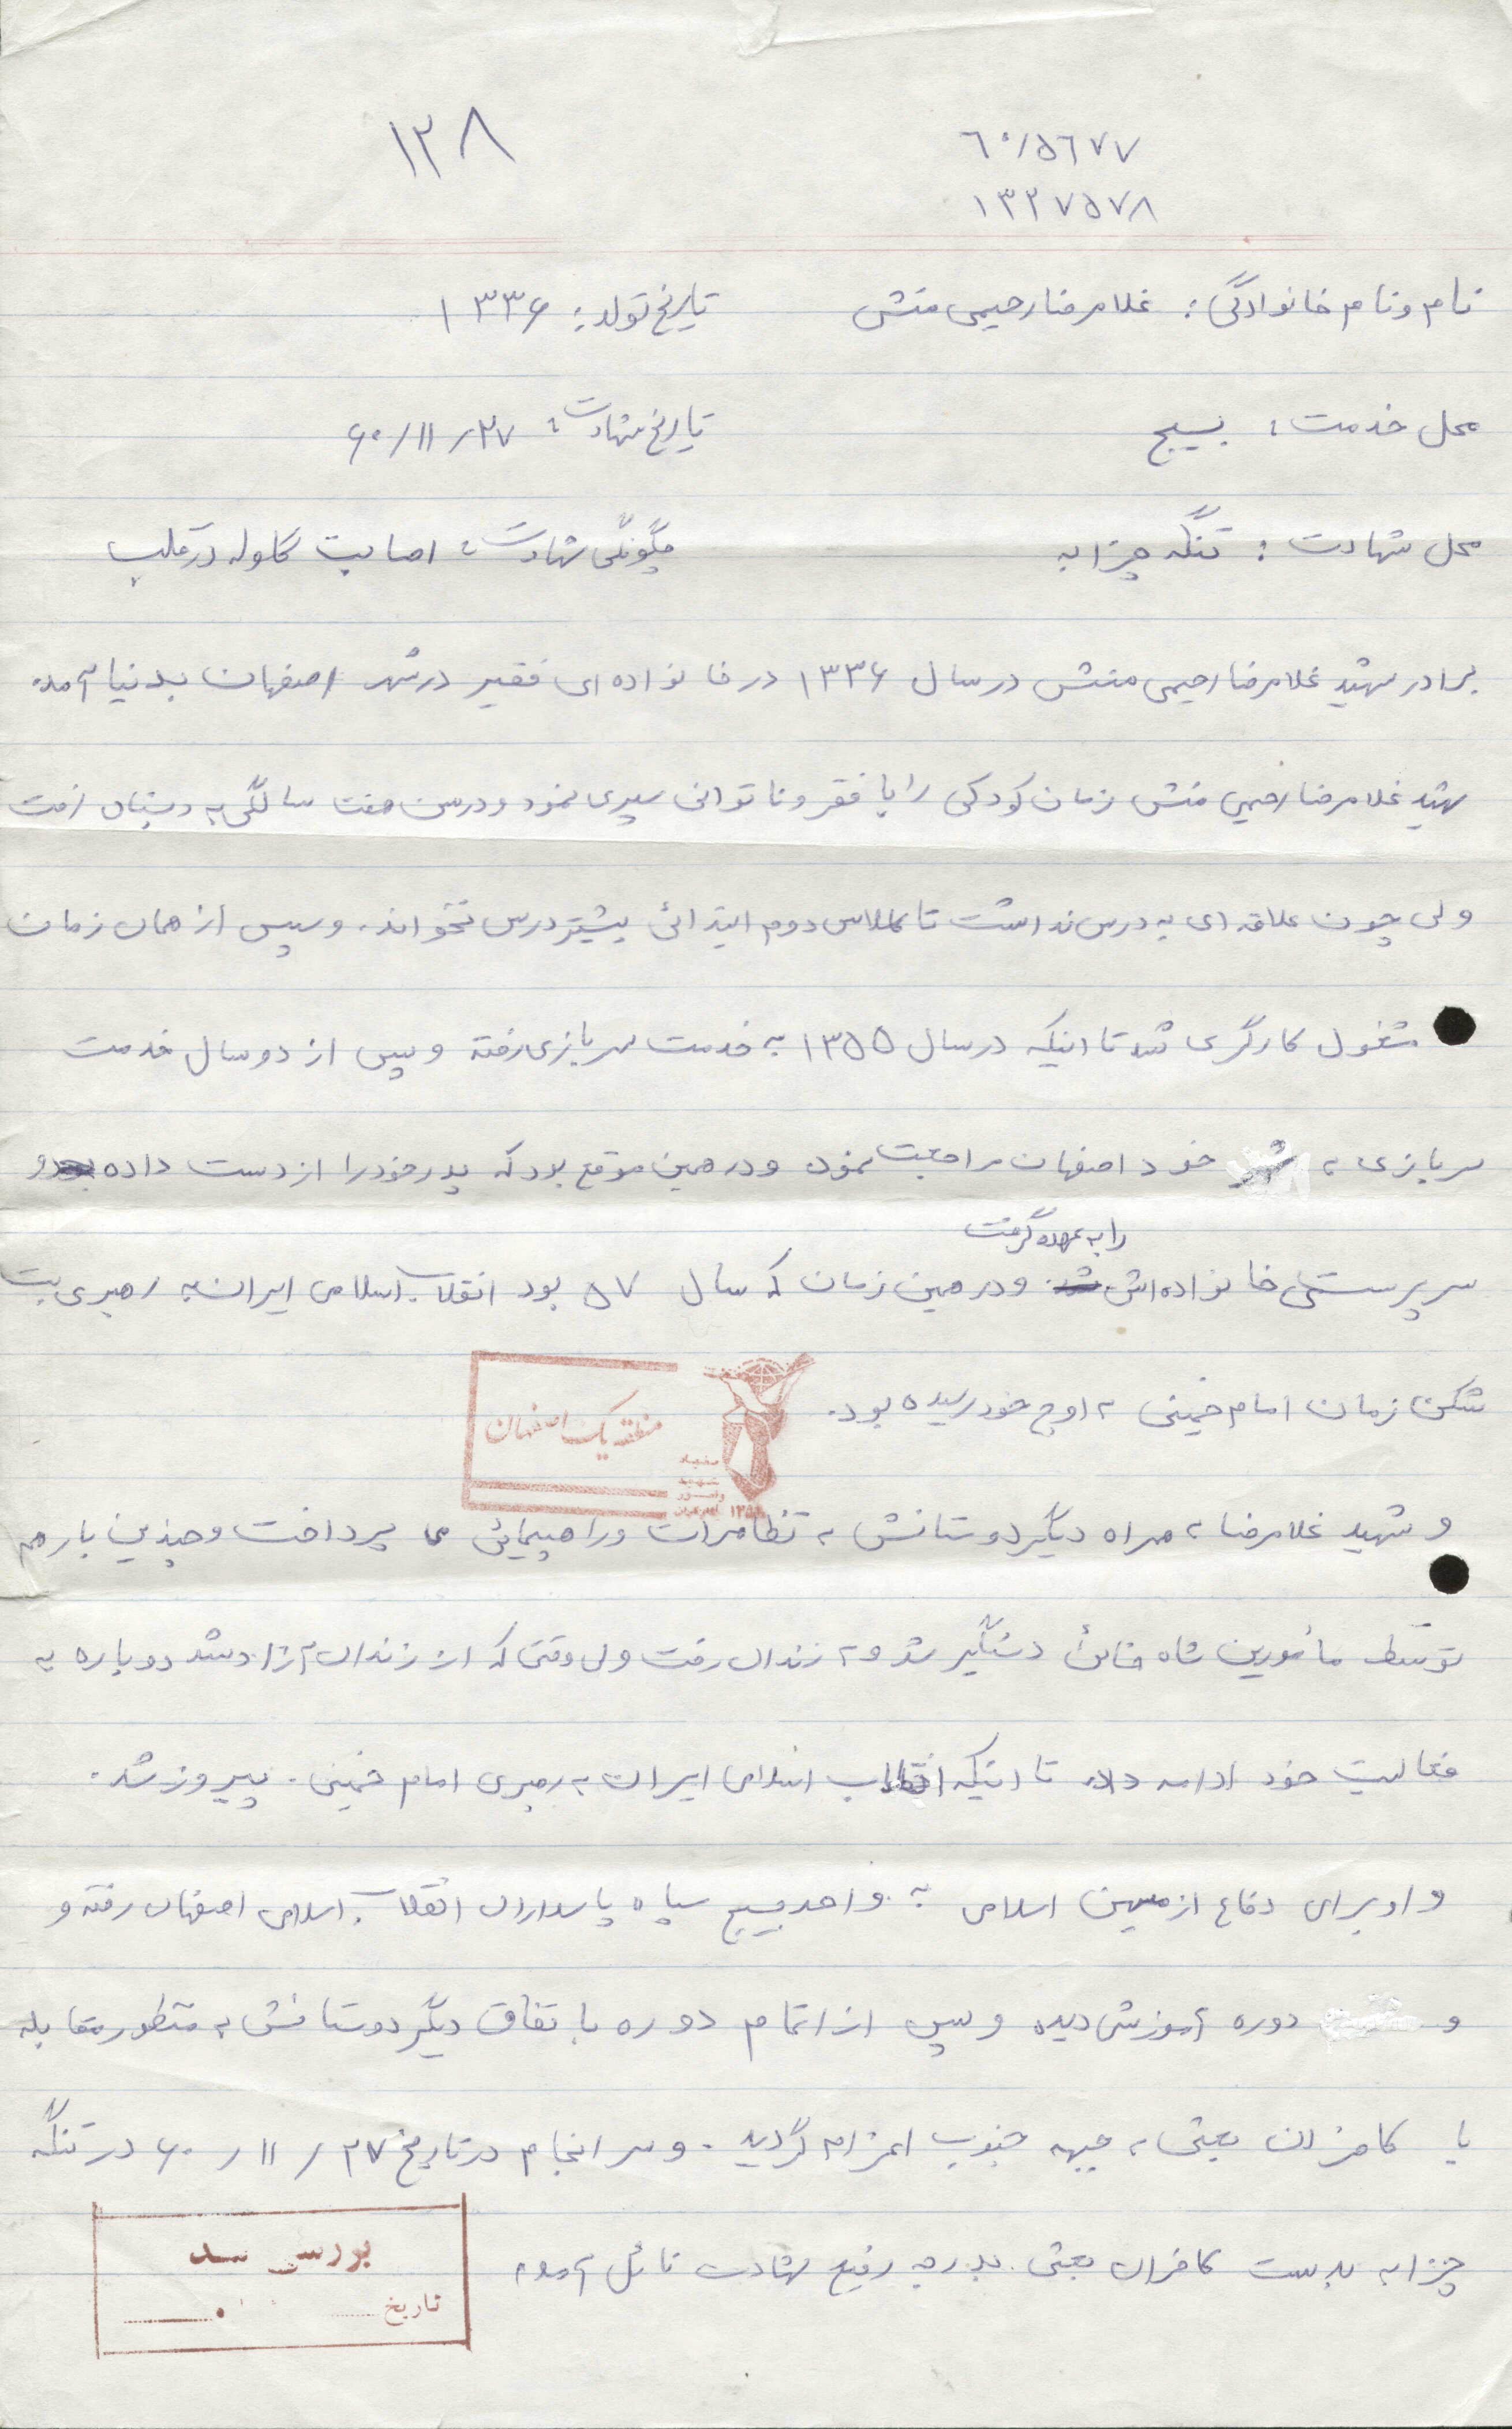 ۱۲۸
۶۰/۵۶۷۷
۱۳۲۷۵۷۸
نام و نام خانوادگی: غلامرضا رحیمی منش تاریخ تولد: ۱۳۳۶
محل خدمت: بسیج تاریخ شهادت: ۶۰/۱۱/۲۷
محل شهادت: تنگه چزابه چگونگی شهادت: اصابت گلوله در قلب
برادر شهید غلامرضا رحیمی منش در سال ۱۳۳۶ در خانواده ای فقیر در شهر اصفهان بدنیا آمد.
شهید غلامرضا رحیمی منش زمان کودکی را با فقر و ناتوانی سپری نمود و در سن هفت سالگی به دبستان رفت
ولی چون علاقه ای به درس نداشت تا کلاس دوم ابتدائی بیشتر درس نخواند. و سپس از همان زمان
مشغول کارگری شد تا اینکه در سال ۱۳۵۵ به خدمت سربازی رفته و پس از دو سال خدمت
سربازی به شهر خود اصفهان مراجعت نمود و در همین موقع بود که پدر خود را از دست داده و
سرپرستی خانواده اش را به عهده گرفت و در همین زمان که سال ۵۷ بود انقلاب اسلامی ایران به رهبری بت
شکن زمان امام خمینی به اوج خود رسیده بود.
منطقه یک اصفهان
بنیاد
شهید
و شهید غلامرضا به همراه دیگر دوستانش به تظاهرات و راهپیمائی می پرداخت و چندین بار هم
توسط مأمورین شاه خائن دستگیر شد و به زندان رفت ولی وقتی که از زندان آزاد شد دوباره به
فعالیت خود ادامه داد تا اینکه انقلاب اسلامی ایران به رهبری امام خمینی. پیروز شد.
و او برای دفاع از میهن اسلامی به واحد بسیج سپاه پاسداران انقلاب اسلامی اصفهان رفته و
و دوره آموزشی دیده و پس از اتمام دوره باتفاق دیگر دوستانش به منظور مقابله
با کافران بعثی به جبهه جنوب اعزام گردید. و سرانجام در تاریخ ۲۷/۱۱/۶۰ در تنگه
چزابه بدست کافران بعثی بدرجه رفیع شهادت نائل آمد.
بررسی شد
تاریخ